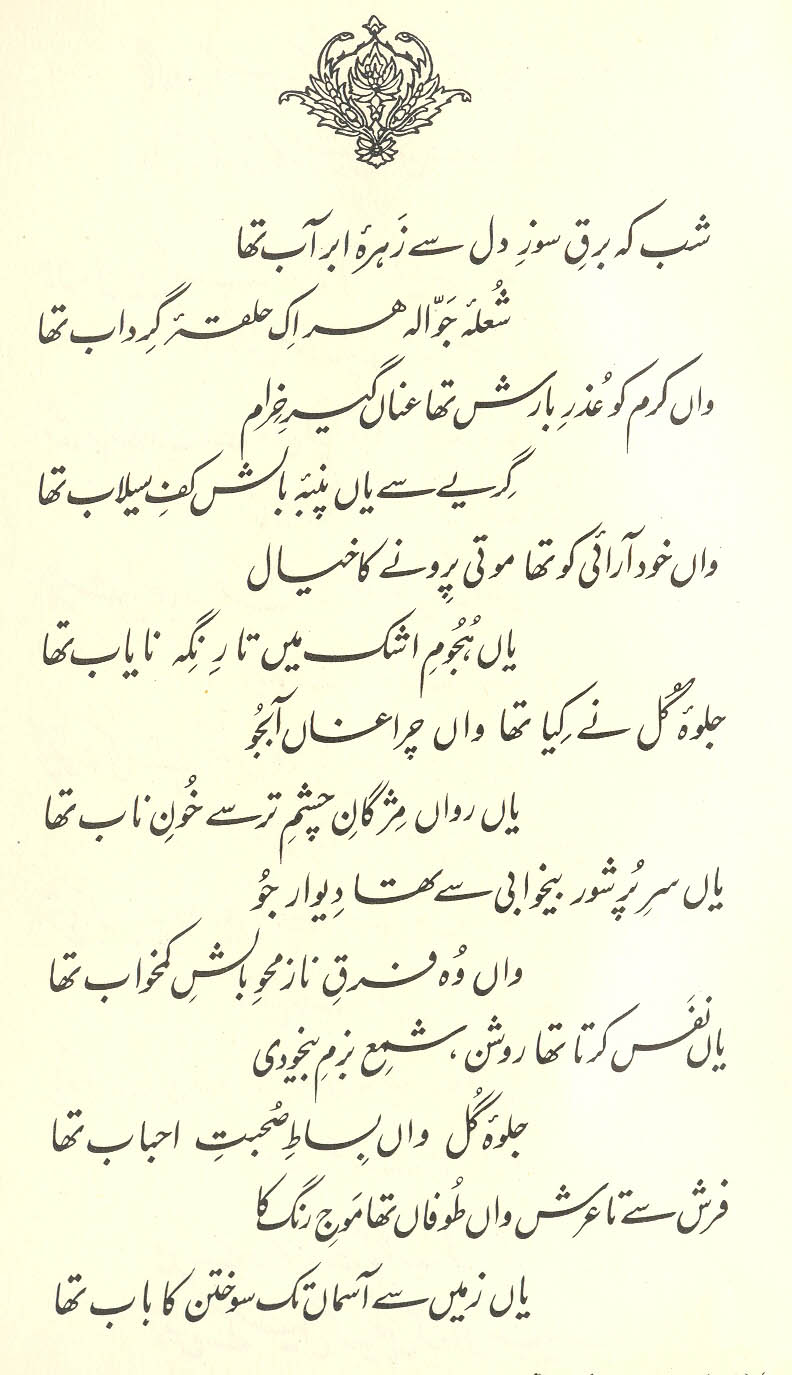 شب کہ برقِ سوزِ دل سے زَہرۂ ابر آب تھا
شُعلۂ جَوّالہ ہر اِک حلقۂ گِرداب تھا
واں کرم کو عُذرِ بارش تھا عناں گیرِ خِرام
گِریے سے یاں پنبۂ بالش کفِ سیلاب تھا
واں خود آرائی کو تھا موتی پِرونے کا خیال
یاں ہُجُومِ اشک میں تارِ نِگہ نایاب تھا
جلوۂ گُل نے کِیا تھا واں چراغاں آبجُو
یاں رواں مِژگانِ چشمِ تر سے خُونِ ناب تھا
یاں سرِ پُر شور بیخوابی سے تھا دِیوار جُو
واں وُہ فرقِ ناز محوِ بالشِ کمخواب تھا
یاں نفَس کرتا تھا روشن، شمعِ بزمِ بیخودی
جلوۂ گُل واں بِساطِ صُحبتِ احباب تھا
فرش سے تا عرش واں طُوفاں تھا مَوجِ رنگ کا
یاں زمیں سے آسماں تک سوختن کا باب تھا